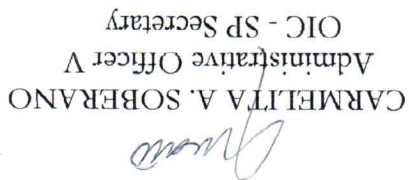 CARMELITA A. SOBERANO
Administrative Officer V
OIC - SP Secretary